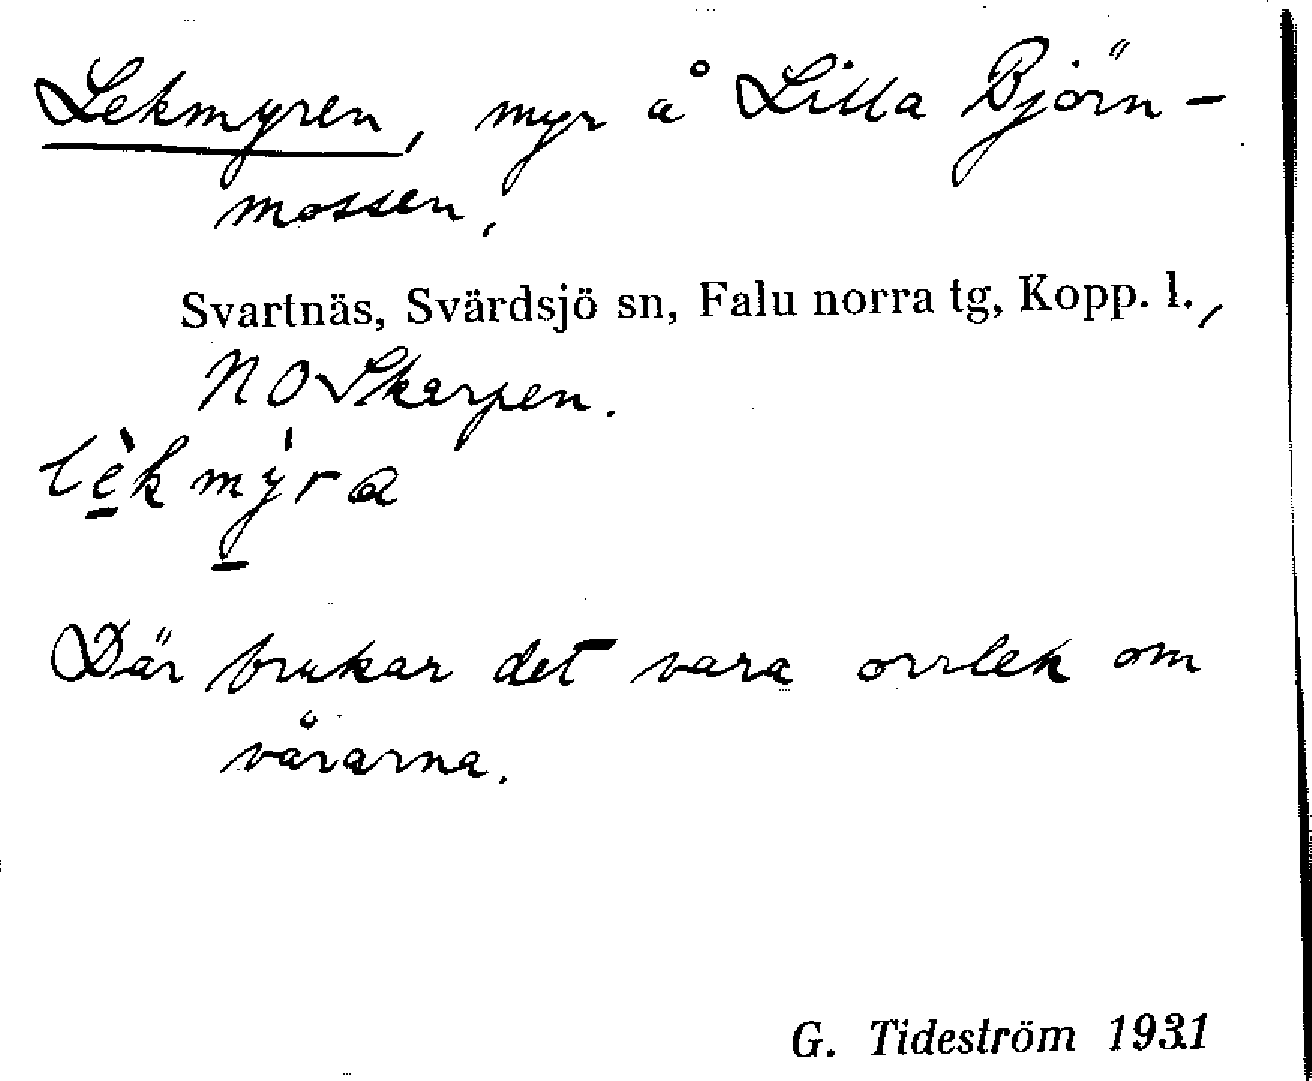 Lekmyren, myr å Lilla Björn-
mossen,
Svartnäs, Svärdsjö sn, Falu norra tg, Kopp. l.,
NO Skarpen.
lè̠kmý̠ra
Där brukar det vara orrlek om
vårarna.
G. Tideström 1931